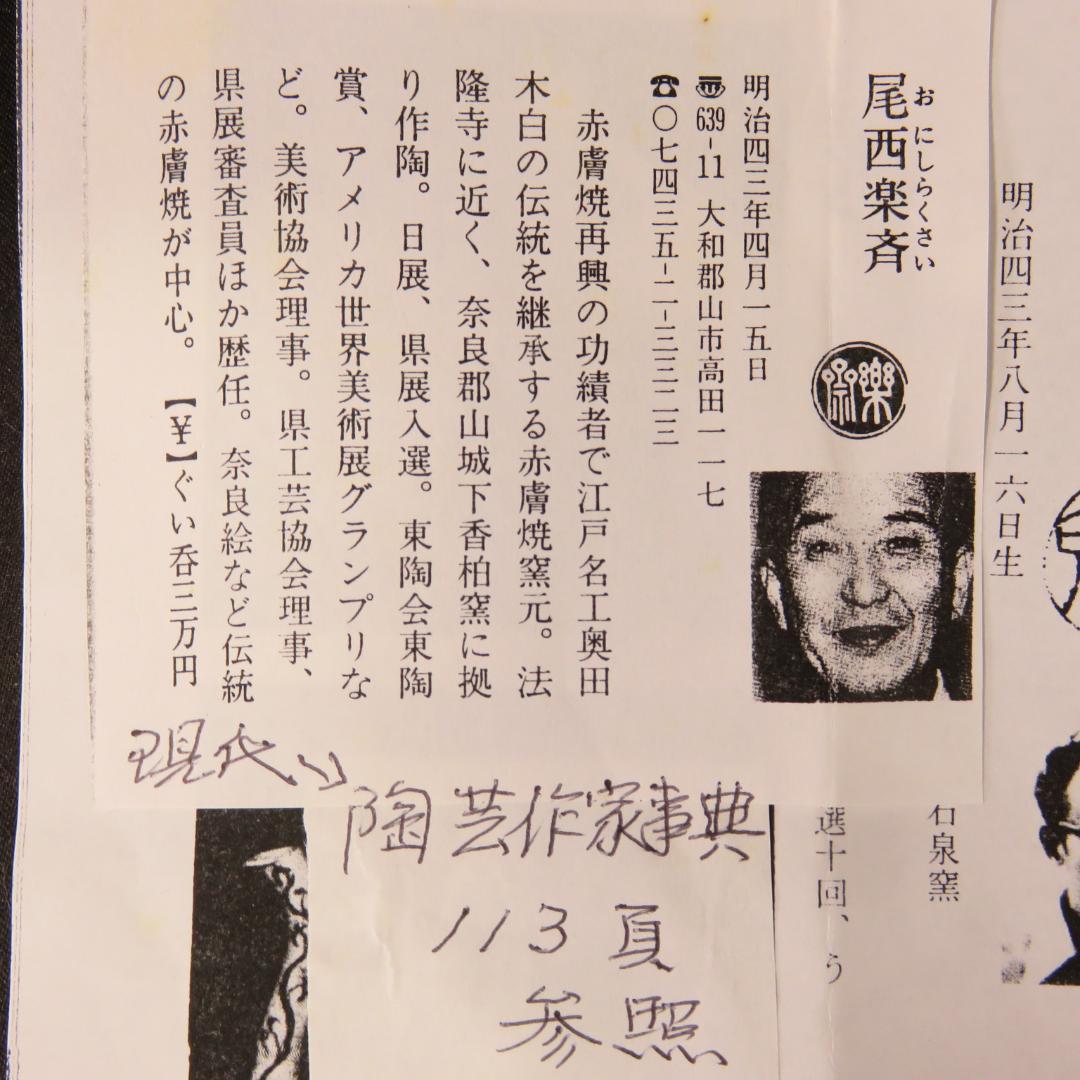 明治四三年八月一六日生
石泉窯
選十回、う
尾西楽斉
おにしらくさい
樂斎
明治四三年四月一五日
639-11 大和郡山市高田一一七
☎〇七四三五-二-三三二三
赤膚焼再興の功績者で江戸名工奥田
木白の伝統を継承する赤膚焼窯元。法
隆寺に近く、奈良郡山城下香柏窯に拠
り作陶。日展、県展入選。東陶会東陶
賞、アメリカ世界美術展グランプリな
ど。美術協会理事。県工芸協会理事、
県展審査員ほか歴任。奈良絵など伝統
の赤膚焼が中心。【¥】ぐい呑三万円
現代
陶芸作家事典
113頁
参照